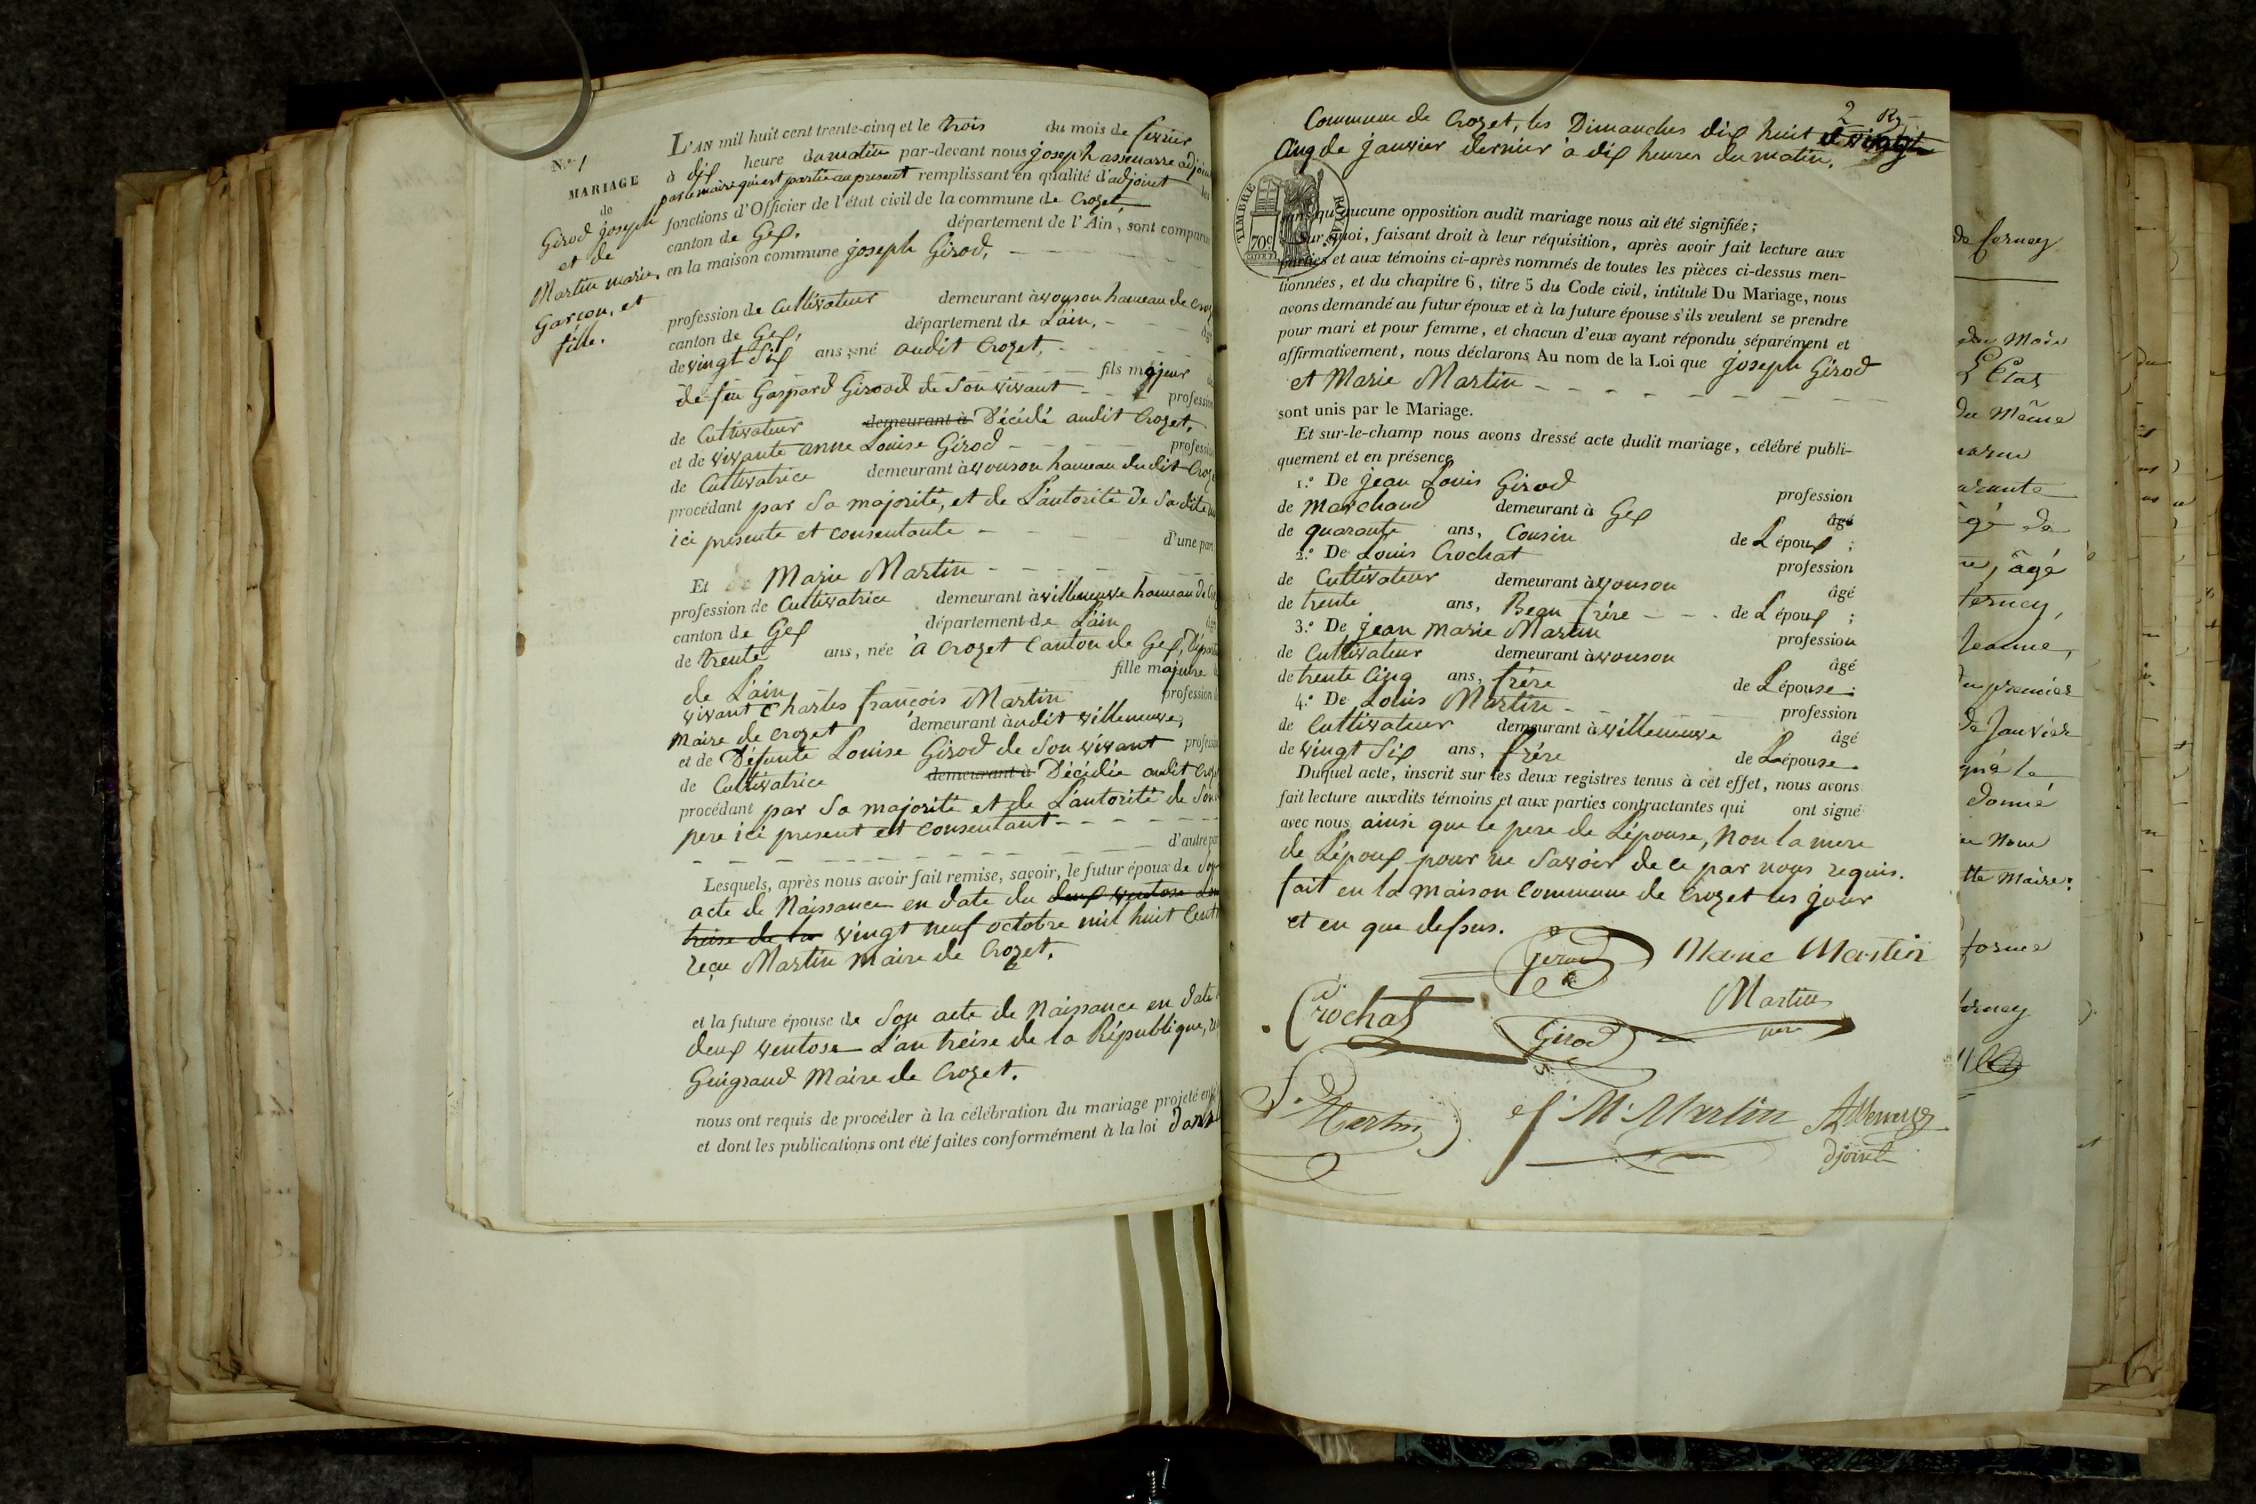 N.º 1
MARIAGE
de
Girod joseph
et de
Martin marie,
garçon, et
fille.
L'AN mil huit cent trente-cinq et le trois du mois de fevrier
à dix heure du matin par-devant nous joseph assenare adjoin
par le maire qui est partie au present remplissant en qualité d'adjoint les
fonctions d'Officier de l'état civil de la commune de Crozet,
canton de Gex, département de l'Ain, sont comparu
en la maison commune joseph Girod,
profession de Cultivateur demeurant à vouson hameau de Croz
canton de Gex, département de L'ain, âgé
de vingt Six ans, né audit Crozet,
fils majeur
de feu Gaspard Girood de Son vivant profession
de Cultivateur demeurant à Décédé audit Crozet,
et de vivante anne Louise Girod profession
de Cultivatrice demeurant à vouson hameau dudit Croze
procédant par Sa majorité, et de L'autorité de Sadite
ici présente et consentante d'une part
Et de Marie Martin
profession de Cultivatrice demeurant à villeneuve hameau de Cro
canton de Gex département de L'ain âgée
de trente ans, née à Crozet Canton de Gex, Départ
fille majeure
de L'ain
vivant Charles françois Martin profession
Maire de Crozet demeurant audit villeneuve,
et de Défunte Louise Girod de Son vivant profession
de Cultivatrice demeurant à Décédée audit Croz
procédant par Sa majorité et de L'autorité de Son
pere ici present et consentant
d'autre part
Lesquels, après nous avoir fait remise, savoir, le futur époux de Son
acte de Naissance en date du deux ventose L'an
treise de la vingt neuf octobre mil huit Cent
reçu Martin Maire de Crozet,
et la future épouse de Son acte de Naissance en date
deux ventose L'an treise de la République,
Guigraud Maire de Crozet.
nous ont requis de procéder à la célébration du mariage projeté
et dont les publications ont été faites conformément à la loi dans
2
Commune de Crozet, les Dimanches dix huit et vingt
Cinq de janvier dernier à dix heures du matin,
TIMBRE ROYAL
70c
sans qu'aucune opposition audit mariage nous ait été signifiée;
Sur quoi, faisant droit à leur réquisition, après avoir fait lecture aux
parties et aux témoins ci-après nommés de toutes les pièces ci-dessus men-
tionnées, et du chapitre 6, titre 5 du Code civil, intitulé Du Mariage, nous
avons demandé au futur époux et à la future épouse s'ils veulent se prendre
pour mari et pour femme, et chacun d'eux ayant répondu séparément et
affirmativement, nous déclarons Au nom de la Loi que joseph Girod
et Marie Martin
sont unis par le Mariage.
Et sur-le-champ nous avons dressé acte dudit mariage, célébré publi-
quement et en présence
1.º De jean Louis Girod profession
de Marchand demeurant à Gex âgé
de quarante ans, Cousin de L'époux;
2.º De Louis Crochat profession
de Cultivateur demeurant à vouson âgé
de trente ans, Beau frère de L'époux;
3.º De jean Marie Martin profession
de Cultivateur demeurant à vouson âgé
de trente Cinq ans, frère de L'épouse;
4.º De Louis Martin profession
de Cultivateur demeurant à villeneuve âgé
de vingt Six ans, frère de L'épouse.
Duquel acte, inscrit sur les deux registres tenus à cet effet, nous avons
fait lecture auxdits témoins et aux parties contractantes qui ont signé
avec nous ainsi que le pere de L'épouse, Non la mere
de L'époux pour ne Savoir de ce par nous requis.
fait en la Maison Commune de Crozet les jour
et en que dessus.
Girod Marie Martin
Crochat Girod Martin
L. Martin J. M. Martin
djoint
de ferney
du Mois
L'Etat
du Même
âgé de
âgé
ferney,
Jeanne,
du premier
de Janvier
qu'à la
donné
forme
ferney